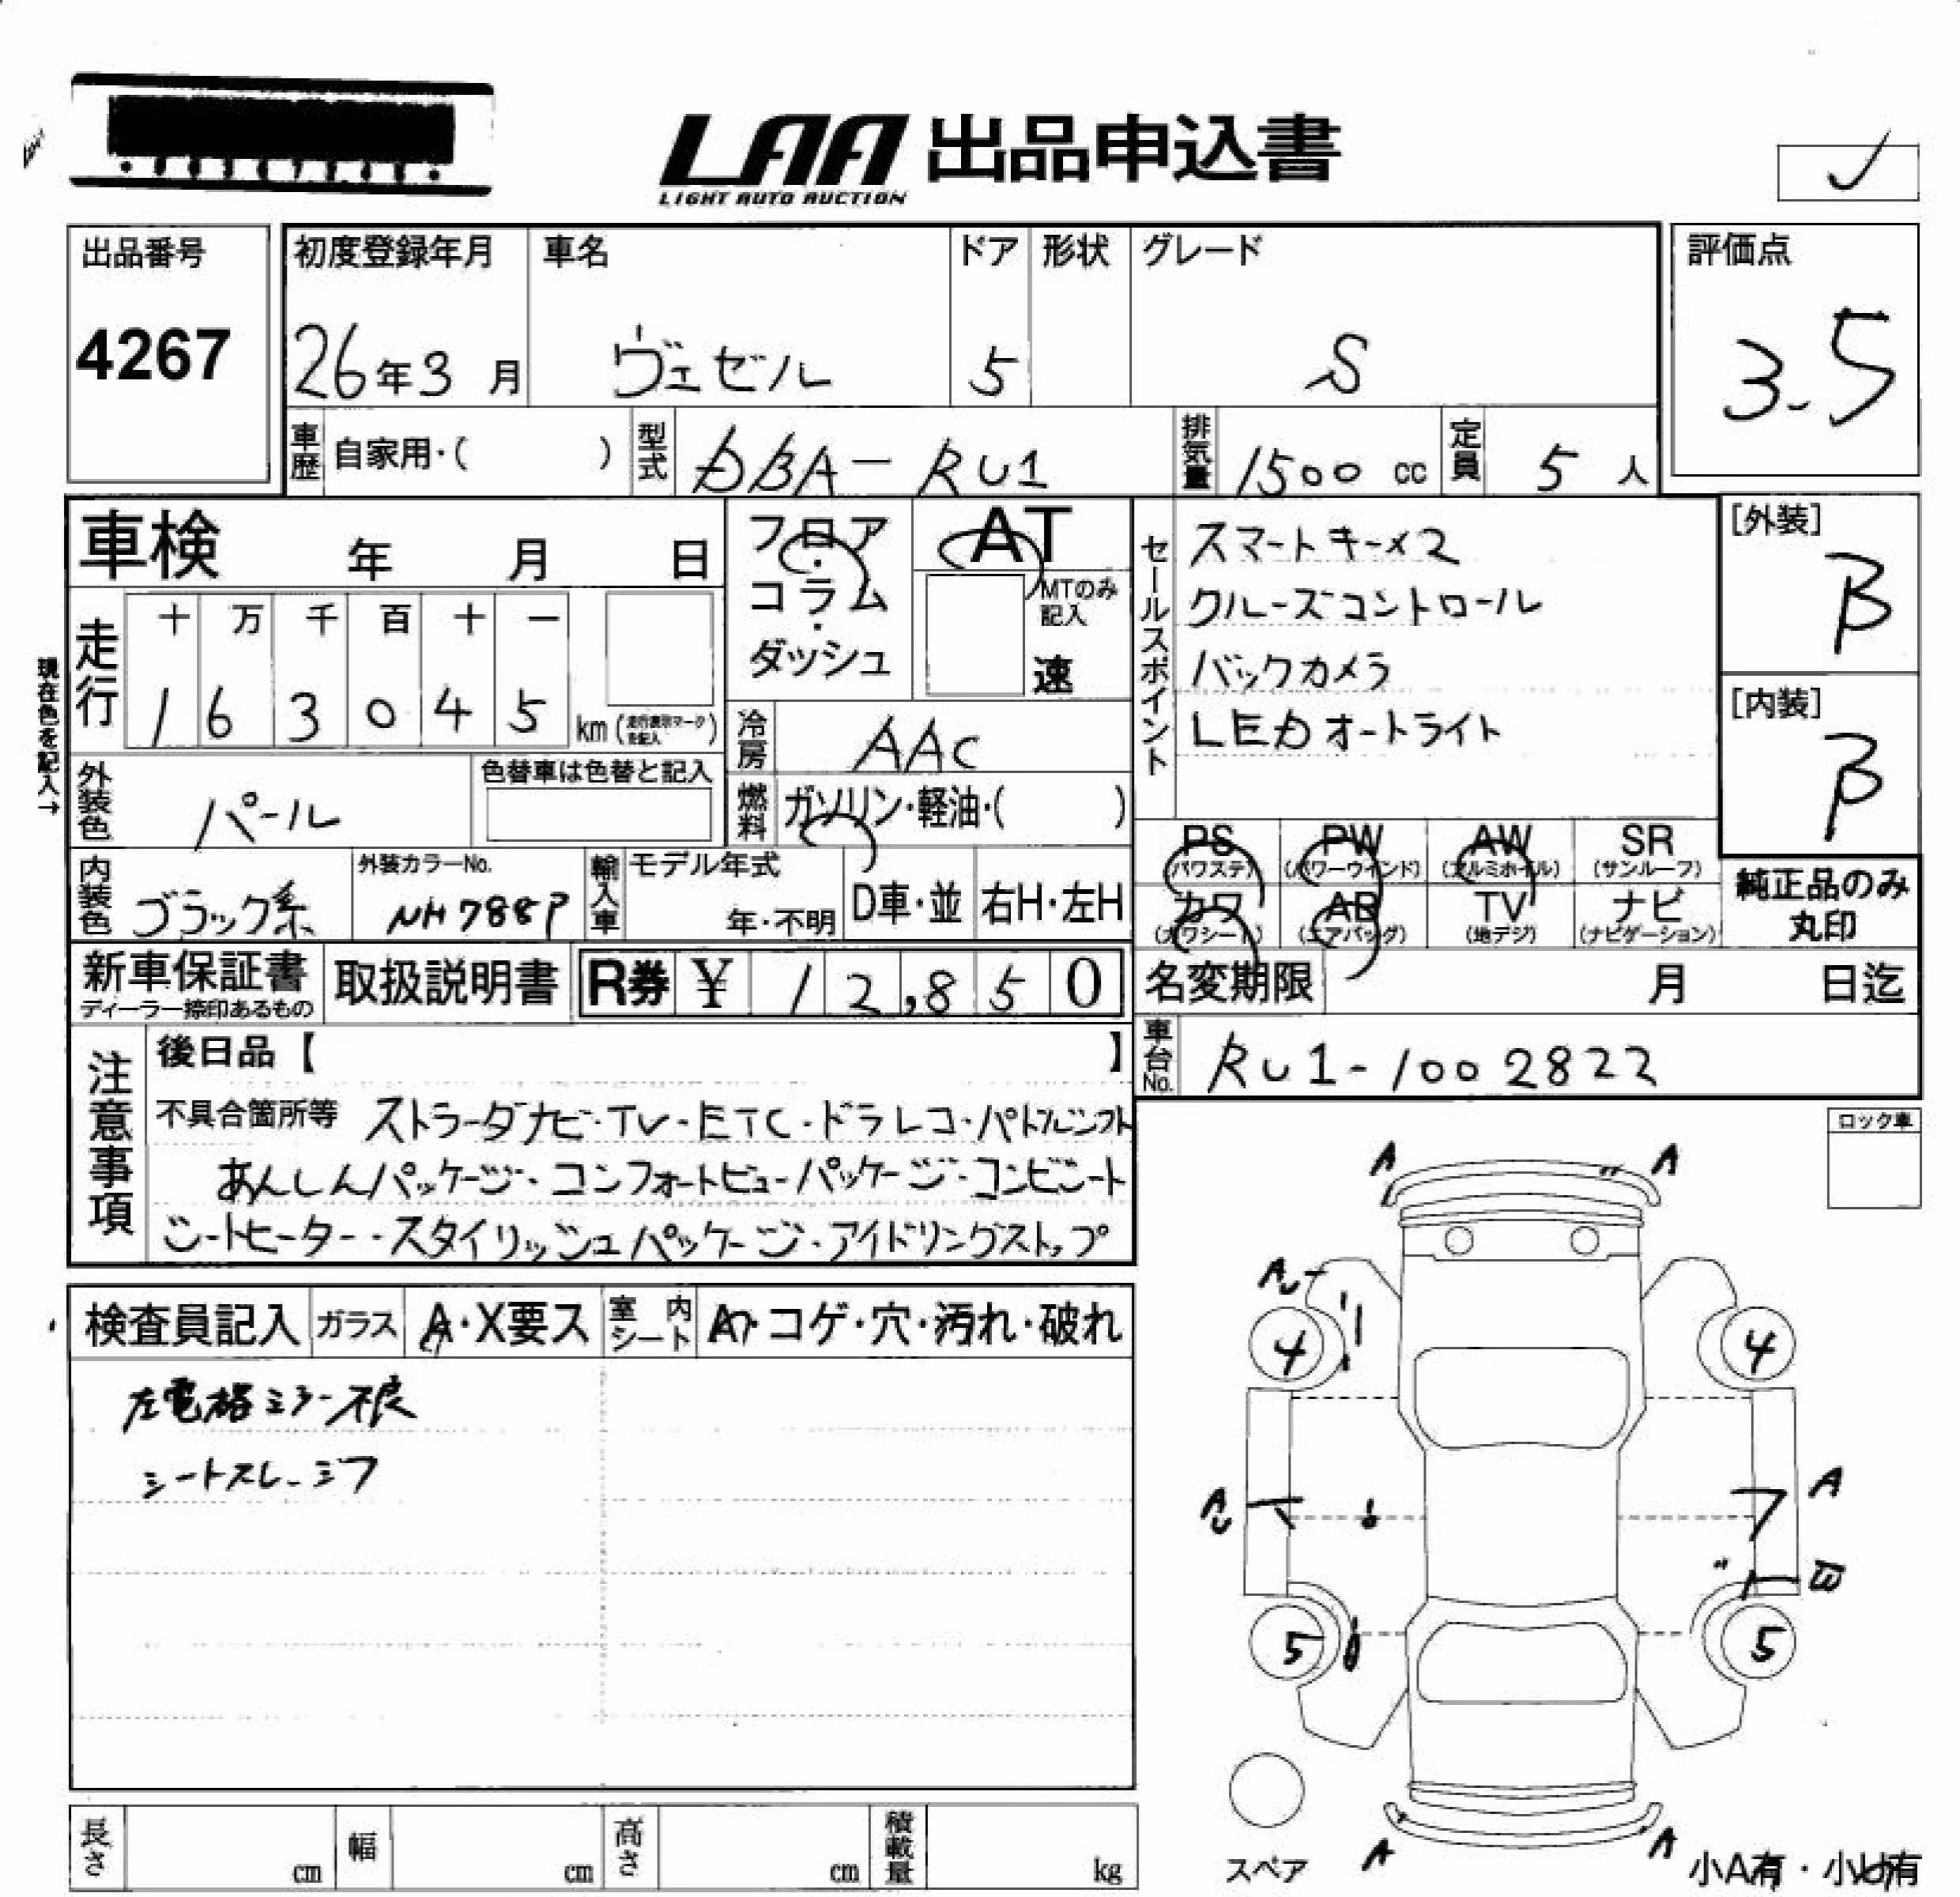 LAA 出品申込書
LIGHT AUTO AUCTION
出品番号
4267
初度登録年月 車名 ドア 形状 グレード
26年3月 ヴェゼル 5 S
評価点
3.5
車歴 自家用・( ) 型式 DBA-RU1 排気量 1500 cc 定員 5 人
車検 年 月 日
フロア・コラム・ダッシュ
AT
MTのみ記入
速
現在色を記入→
走行
十 万 千 百 十 一
1 6 3 0 4 5 km
冷房 AAC
外装色 パール
色替車は色替と記入
燃料 ガソリン・軽油・( )
内装色 ブラック系
外装カラーNo.
NH788P
輸入車 モデル年式
年・不明 D車・並 右H・左H
セールスポイント
スマートキー×2
クルーズコントロール
バックカメラ
LEDオートライト
[外装]
B
[内装]
B
PS PW AW SR
(パワステ) (パワーウインド) (アルミホイル) (サンルーフ)
カワ AB TV ナビ
(カワシート) (エアバッグ) (地デジ) (ナビゲーション)
純正品のみ
丸印
新車保証書
ディーラー捺印あるもの
取扱説明書
R券 ¥ 12,850
名変期限 月 日迄
車台No. RU1-1002822
注意事項
後日品【 】
不具合箇所等 ストラーダナビ・TV・ETC・ドラレコ・パドルシフト
あんしんパッケージ・コンフォートビューパッケージ・コンビシート
シートヒーター・スタイリッシュパッケージ・アイドリングストップ
ロック車
検査員記入 ガラス A・X要ス 室内シート ・コゲ・穴・汚れ・破れ
左電格ミラー不良
シートスレ・シワ
A A
AU
4 4
AU A
B
5 5
スペア
A A
小A有・小U有
長さ cm 幅 cm 高さ cm 積載量 kg